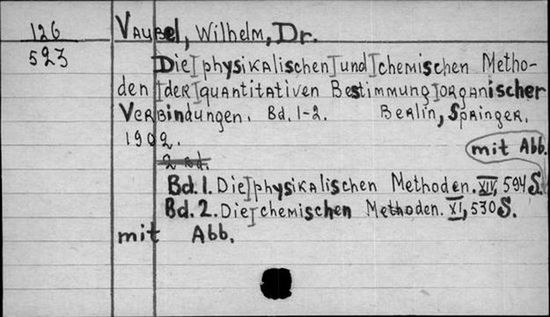 126 Vaubel, Wilhelm, Dr.
523 Die physikalischen und chemischen Metho-
den der quantitativen Bestimmung organischer
Verbindungen. Bd. 1-2. Berlin, Springer.
1902. mit Abb.
2 Bd.
Bd. 1. Die physikalischen Methoden. XIV, 594 S.
Bd. 2. Die chemischen Methoden. XI, 530 S.
mit Abb.